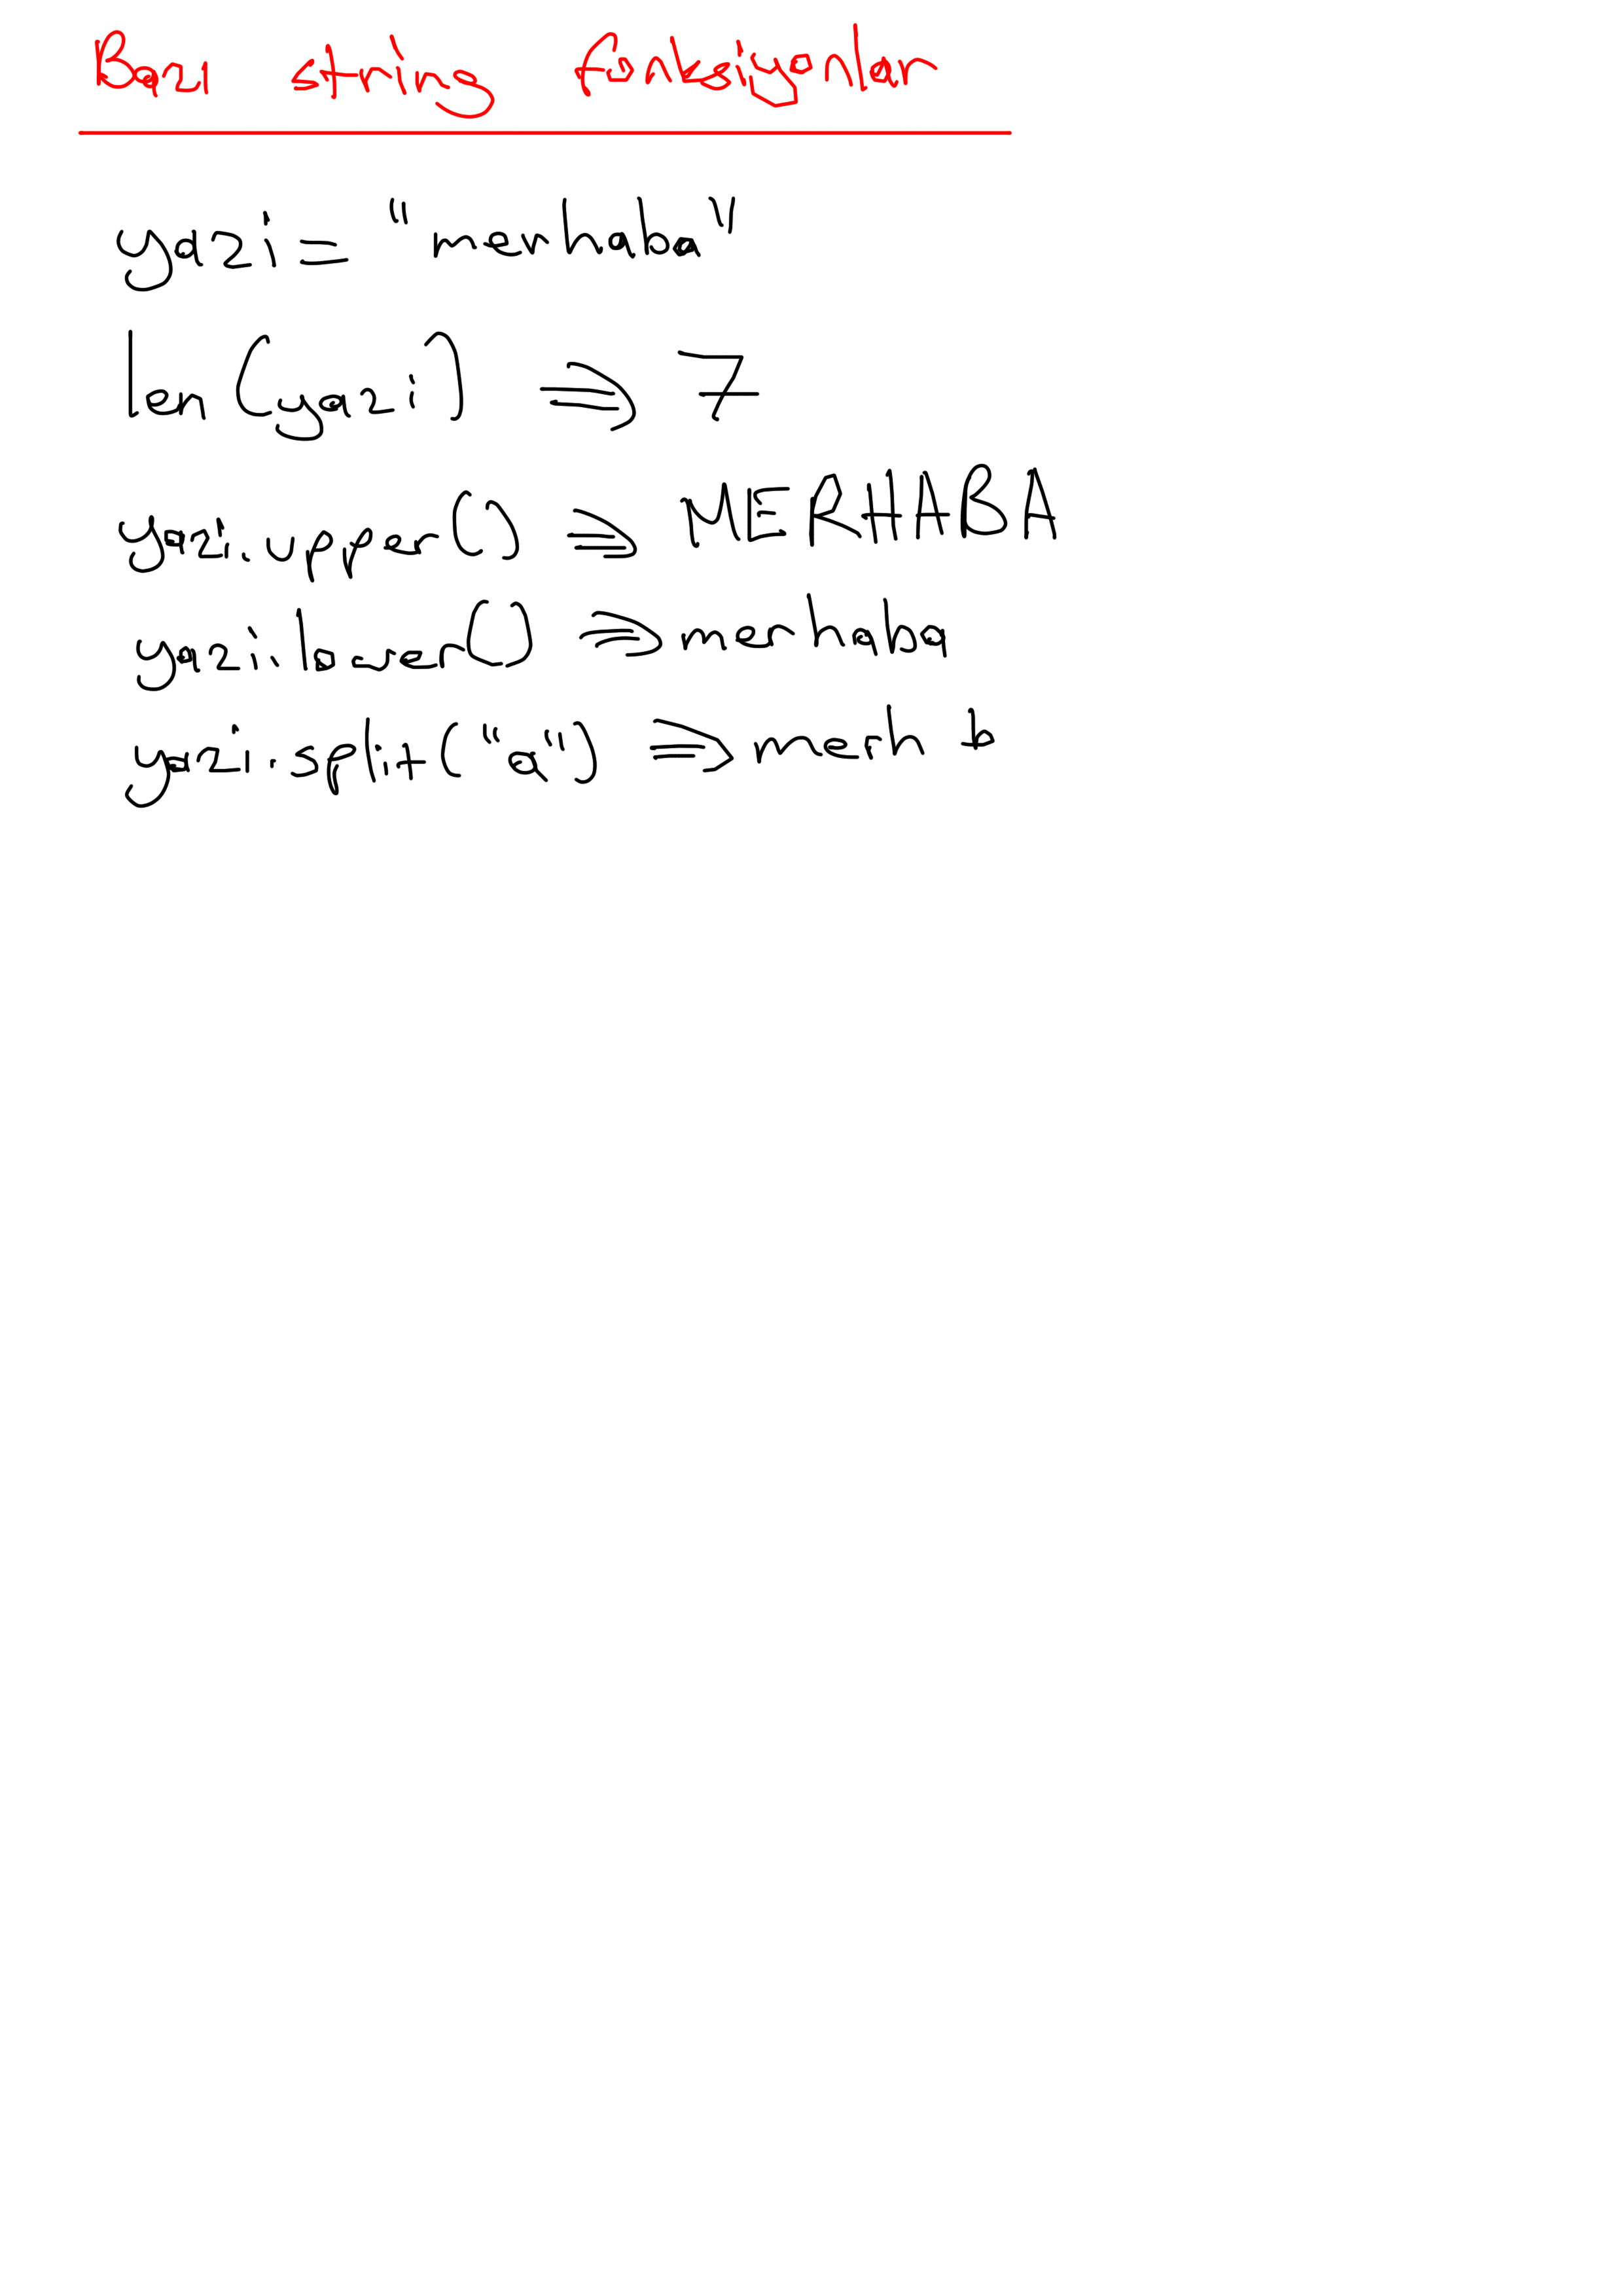 Bazı string fonksiyonlar
yazi = "merhaba"
len (yazi) ⇒ 7
yazi.upper() ⇒ MERHABA
yazi.lower() ⇒ merhaba
yazi.split("a") ⇒ merh b